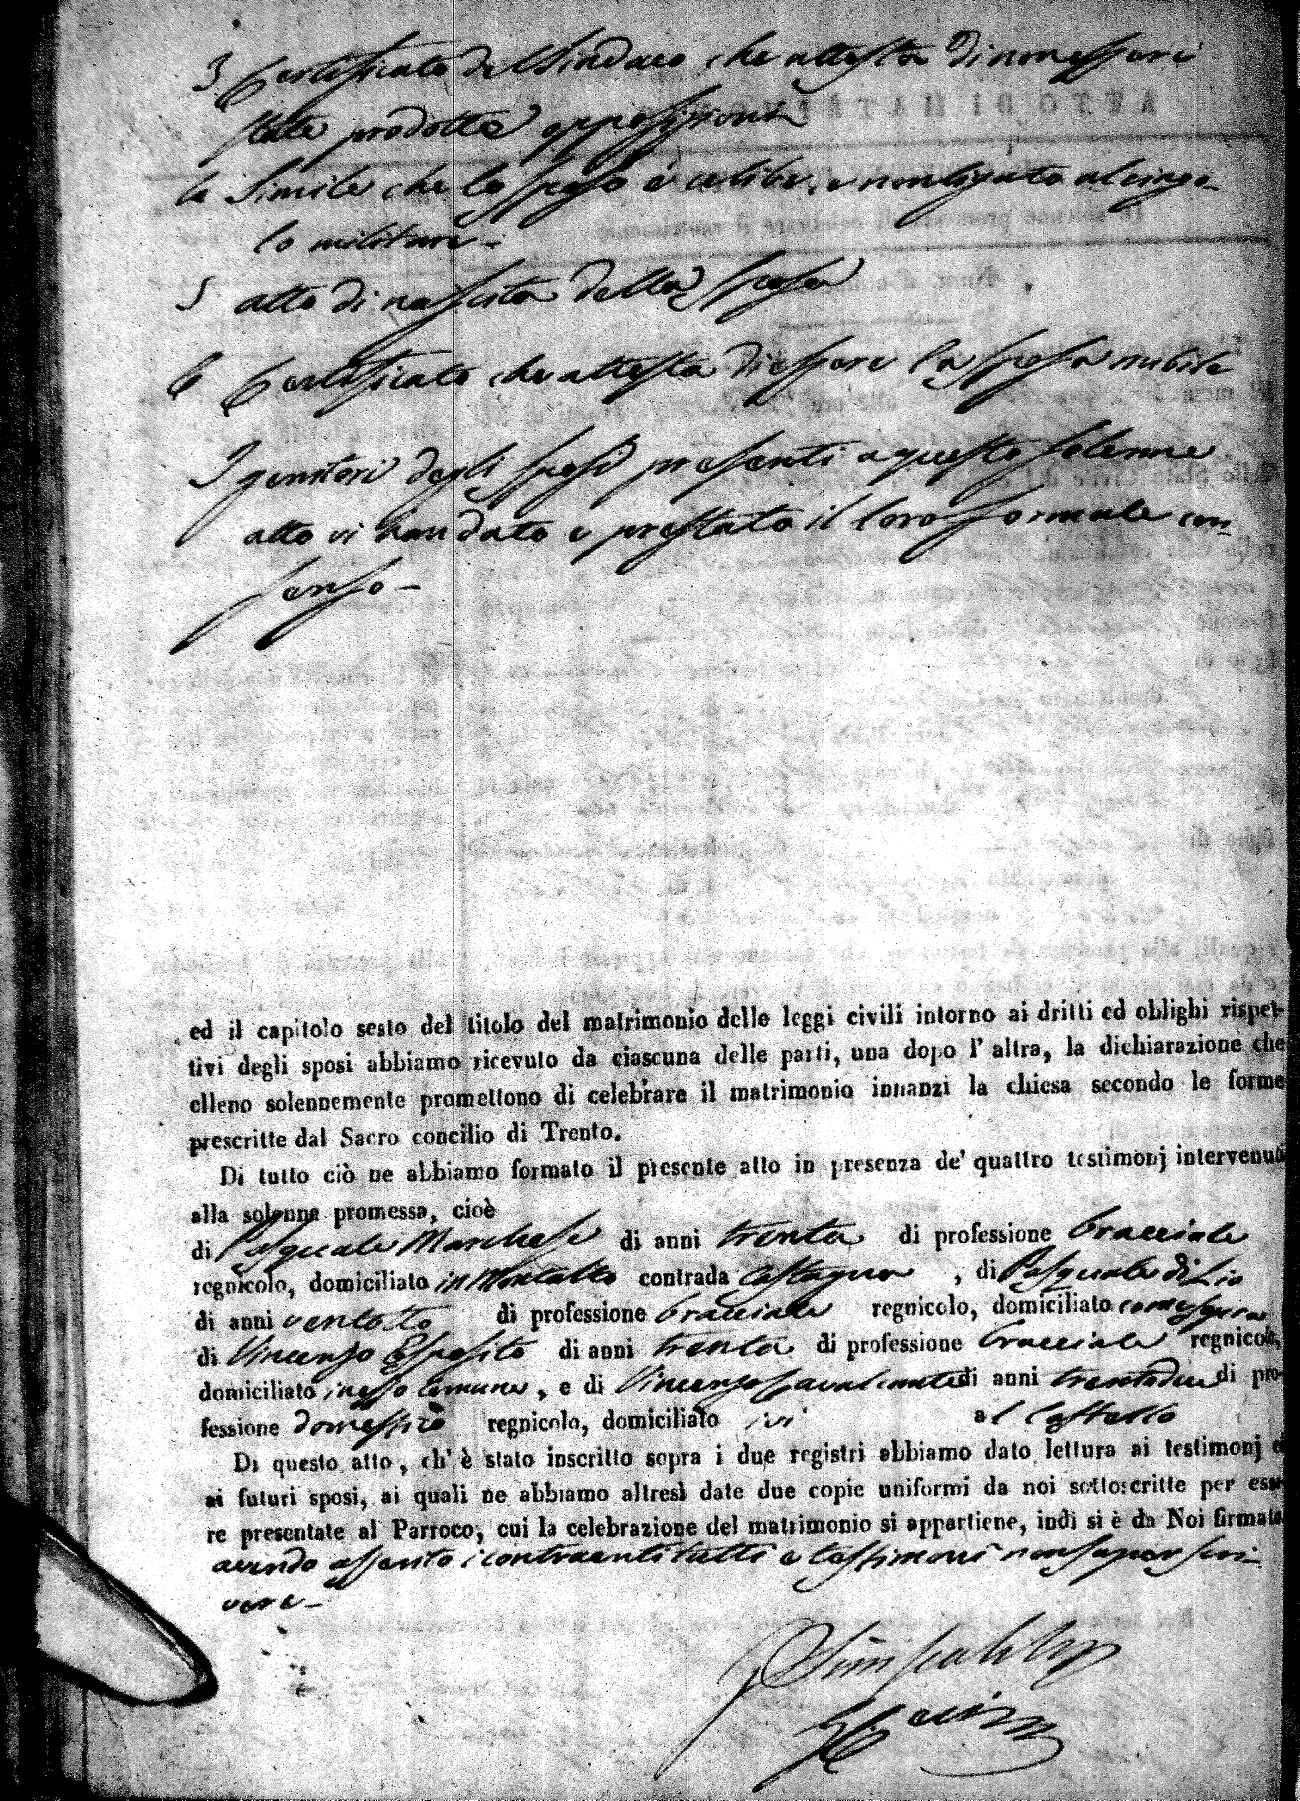 3 Certificato del Sindaco che attesta di non essere
state prodotte opposizioni
4 Simile che lo sposo è celibe, e non ligato al cingo-
lo militare -
5 atto di nascita della sposa
6 Certificato che attesta di essere la sposa nubile
I genitori degli sposi presenti a questo solenne
atto vi han dato e prestato il loro formale con-
senso -
ed il capitolo sesto del titolo del matrimonio delle leggi civili intorno ai dritti ed oblighi rispet-
tivi degli sposi abbiamo ricevuto da ciascuna delle parti, una dopo l' altra, la dichiarazione che
elleno solennemente promettono di celebrare il matrimonio innanzi la chiesa secondo le forme
prescritte dal Sacro concilio di Trento.
Di tutto ciò ne abbiamo formato il presente atto in presenza de' quattro testimonj intervenuti
alla solenne promessa, cioè
di Pasquale Marchese di anni trenta di professione bracciale
regnicolo, domiciliato in Montalto contrada Castagna , di Pasquale di Lio
di anni ventotto di professione bracciale regnicolo, domiciliato come sopra
di Vincenzo Esposito di anni trenta di professione bracciale regnicolo,
domiciliato in esso Comune, e di Vincenzo Cavalcante di anni trentadue di pro-
fessione domestico regnicolo, domiciliato ivi al Castello
Di questo atto, ch' è stato inscritto sopra i due registri abbiamo dato lettura ai testimonj e
ai futuri sposi, ai quali ne abbiamo altresì date due copie uniformi da noi sottoscritte per esse-
re presentate al Parroco, cui la celebrazione del matrimonio si appartiene, indi si è da Noi firmato
avendo asserito i contraenti tutti e testimoni non saper scri-
vere -